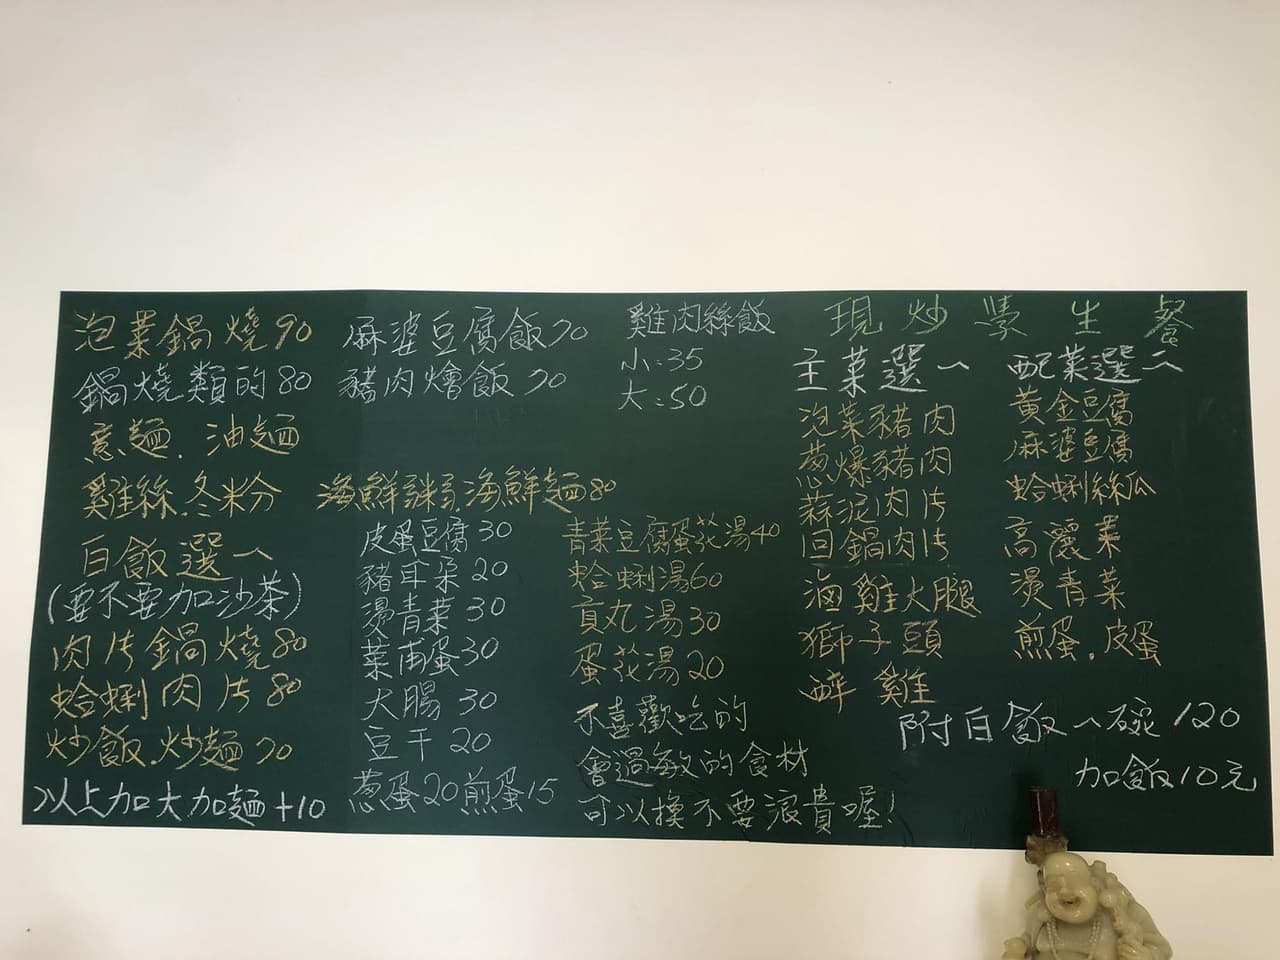 泡菜鍋燒90
鍋燒類的80
意麵.油麵
雞絲.冬粉
白飯選一
(要不要加沙茶)
肉片鍋燒80
蛤蜊肉片80
炒飯.炒麵70
以上加大加麵+10
麻婆豆腐飯70
豬肉燴飯70
海鮮粥.海鮮麵80
皮蛋豆腐30
豬耳朵20
燙青菜30
菜甫蛋30
大腸30
豆干20
葱蛋20煎蛋15
雞肉絲飯
小:35
大:50
青菜豆腐蛋花湯40
蛤蜊湯60
貢丸湯30
蛋花湯20
不喜歡吃的
會過敏的食材
可以換不要浪費喔!
現炒學生餐
主菜選一
泡菜豬肉
葱爆豬肉
蒜泥肉片
回鍋肉片
滷雞大腿
獅子頭
醉雞
配菜選二
黃金豆腐
麻婆豆腐
蛤蜊絲瓜
高麗菜
燙青菜
煎蛋.皮蛋
附白飯一碗120
加飯10元